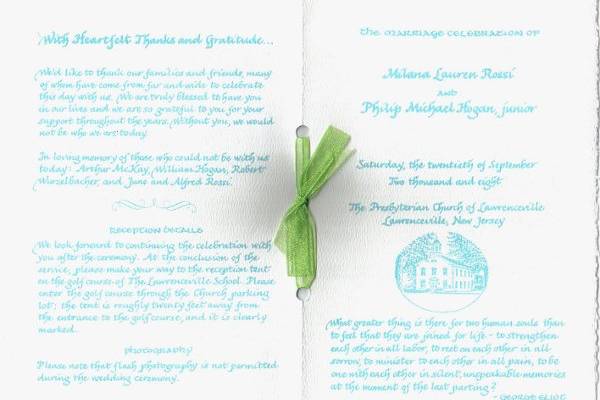 With Heartfelt Thanks and Gratitude...
We'd like to thank our families and friends, many
of whom have come from far and wide to celebrate
this day with us. We are truly blessed to have you
in our lives and we are so grateful to you for your
support throughout the years. Without you, we would
not be who we are today.
In loving memory of those who could not be with us
today: Arthur McKay, William Hogan, Robert
Wirzelbacher, and June and Alfred Rossi.
RECEPTION DETAILS
We look forward to continuing the celebration with
you after the ceremony. At the conclusion of the
service, please make your way to the reception tent
on the golf course of The Lawrenceville School. Please
enter the golf course through the Church parking
lot; the tent is roughly twenty feet away from
the entrance to the golf course, and it is clearly
marked.
photography
Please note that flash photography is not permitted
during the wedding ceremony.
the MARRIAGE CELEBRATION OF
Milana Lauren Rossi
AND
Philip Michael Hogan, junior
Saturday, the twentieth of September
Two thousand and eight
The Presbyterian Church of Lawrenceville
Lawrenceville, New Jersey
What greater thing is there for two human souls than
to feel that they are joined for life - to strengthen
each other in all labor, to rest on each other in all
sorrow, to minister to each other in all pain, to be
one with each other in silent, unspeakable memories
at the moment of the last parting?
- GEORGE ELIOT